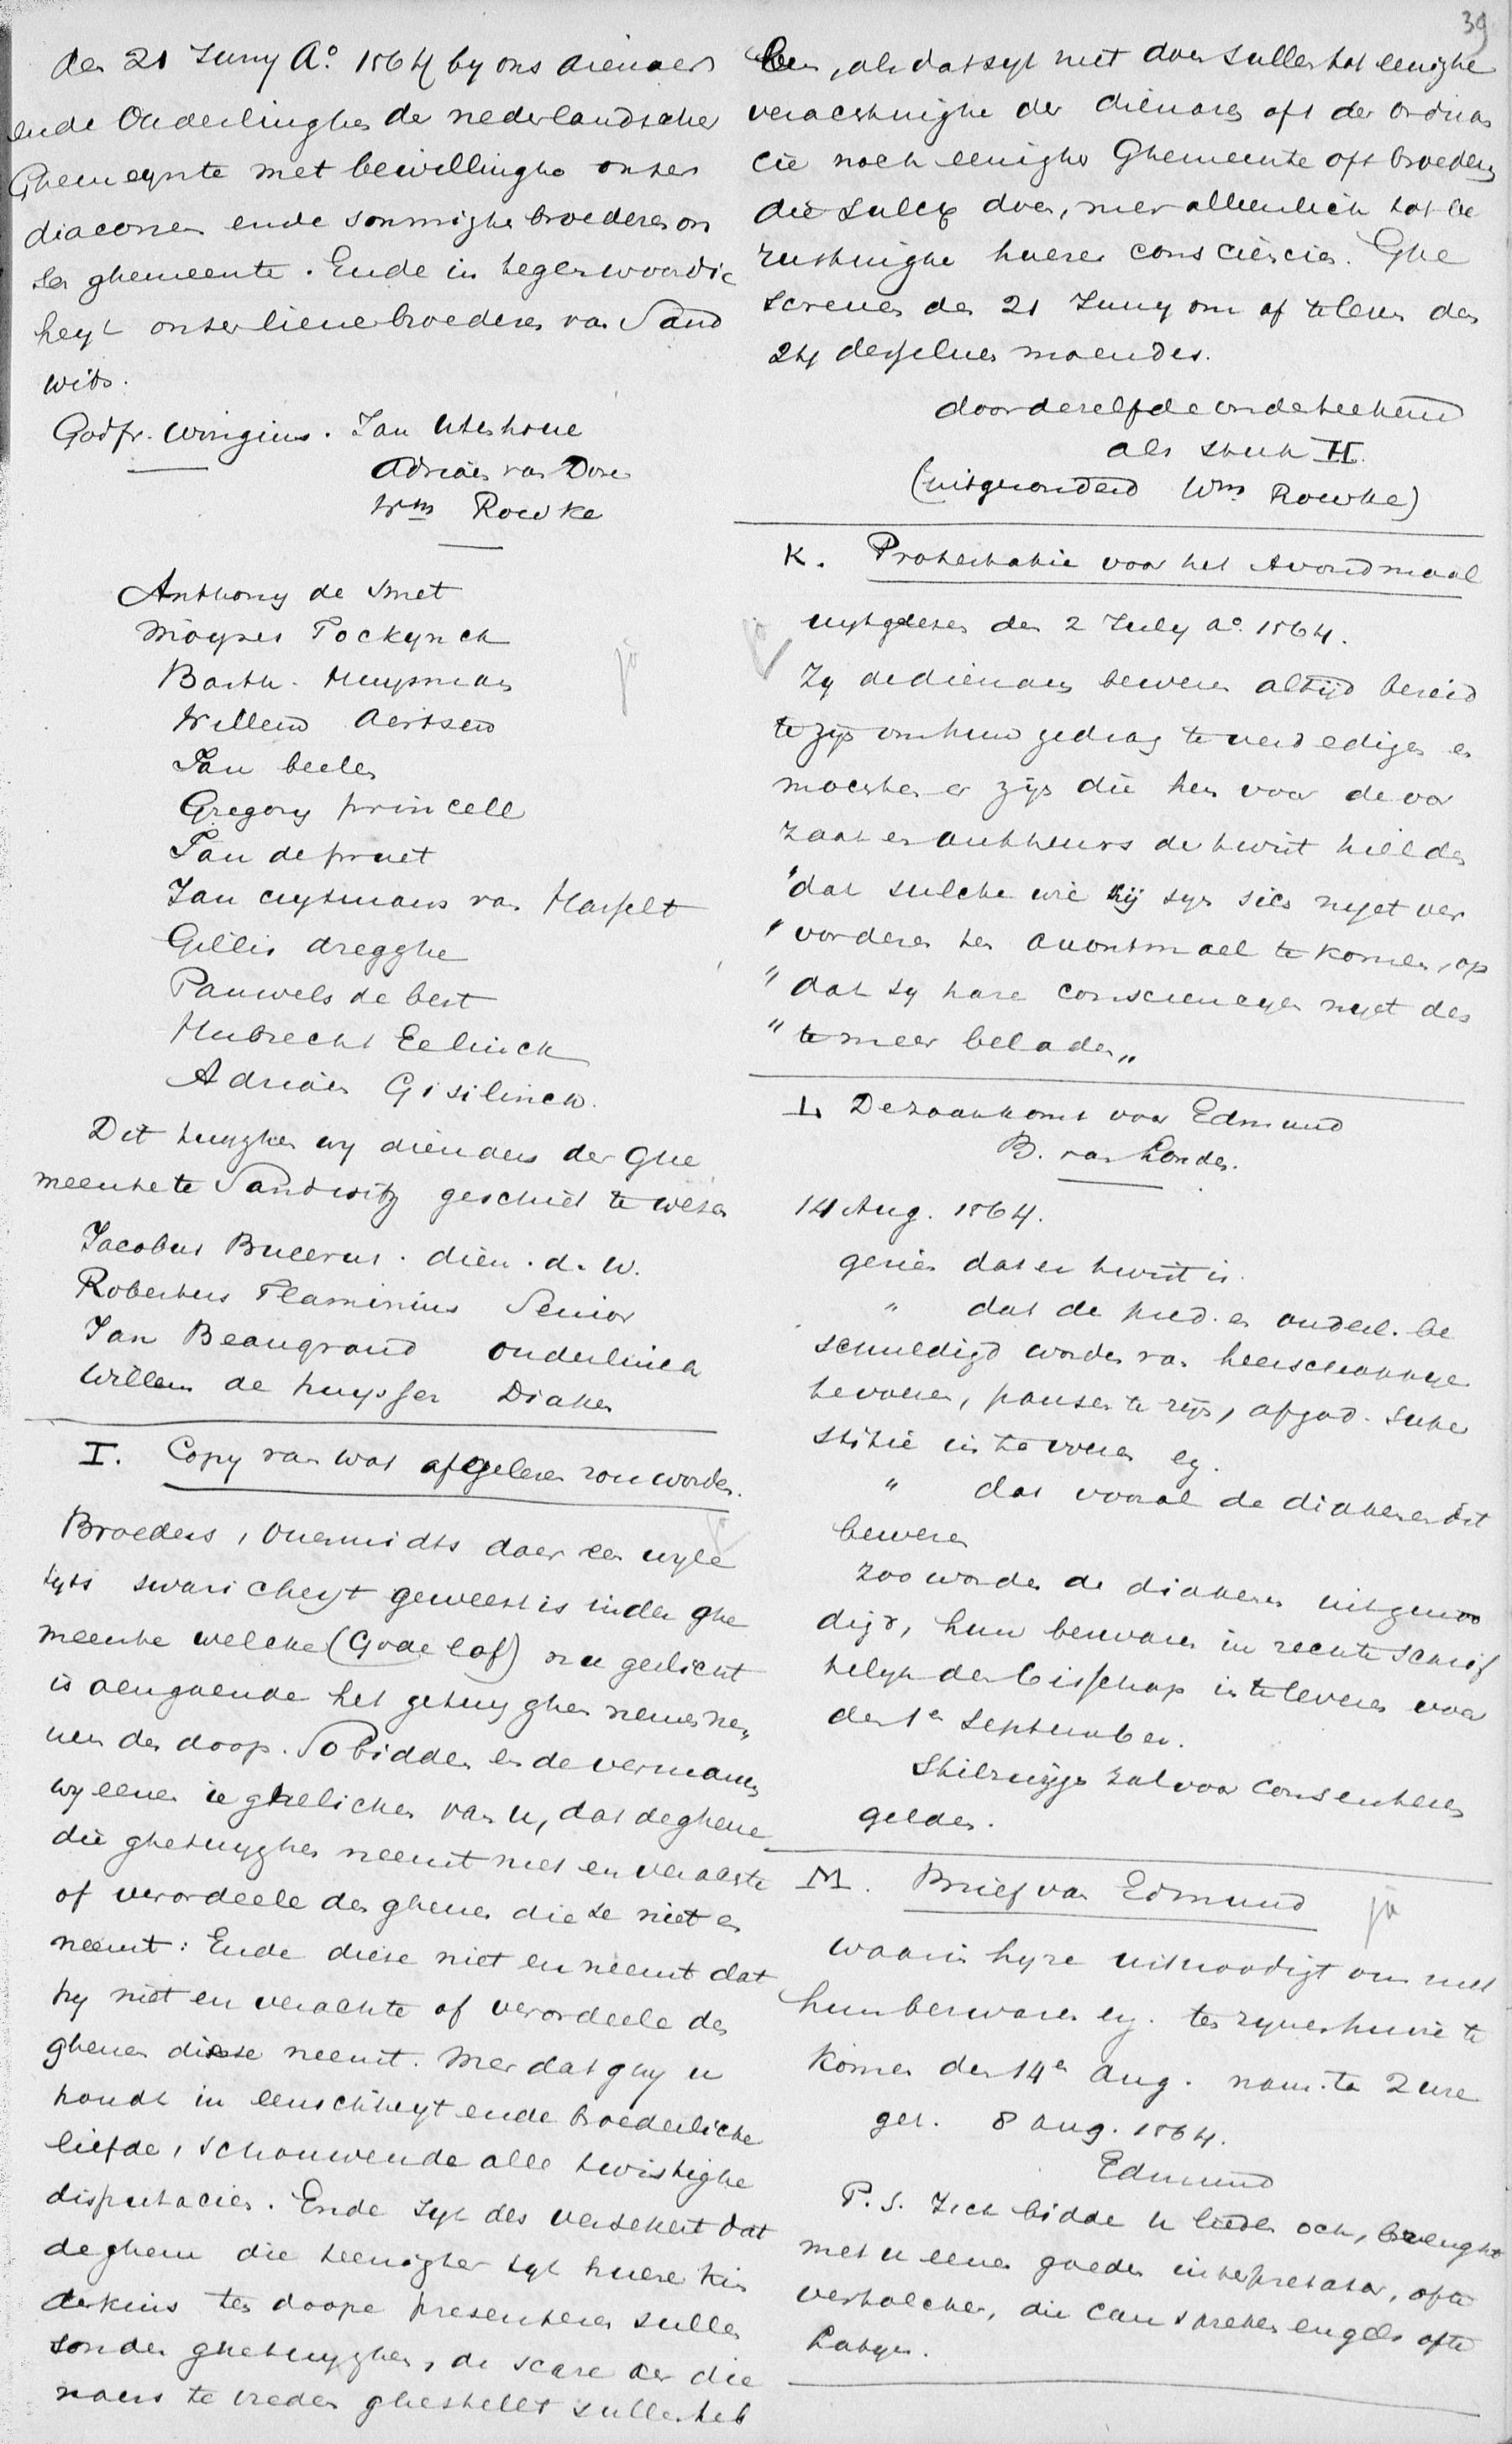 39
den 21 Juny Aº. 1564 by ons dienaers
ende Ouderlinghen de nederlandscher
Ghemeynte met bewillinghe onser
diaconen ende sommighe broederen on
ser ghemeente. Ende in tegenwoordic
heyt onser lieve broederen van Sand
wits.
Godfr. Wingius. Jan Utenhove
Adriaen van Dore
Wm Rowke
Anthony de Smet
Moyses Fockynck
Barth. Huysman
Willem Aertsen
Jan beelen
Gregory princell
Jan de pruet
Jan cuysmans van Hasselt
Gillis dregghe
Pauwels de best
Hubrecht Eelinck
Adriaen Gisilinck.
Dit tuyghen wy dienaers der Ghe
meente te Sandwitz geschiet te wesen
Jacobus Bucerus. dien. d. W.
Robertus Flaminius Senior
Jan Beaugrand ouderlinck
Willem de huysser Diaken
I. Copy van wat afgelesen zou worden.
Broeders, overmidts daer een wyle
tyts swaricheyt geweest is inder ghe
meente welcke (Gode lof) nu geslicht
is aengaende het getuyghen nemen
over den doop. So bidden ende vermanen
wy eenen ieghelicken van u, dat deghene
die ghetuyghen neemt niet en verachte
of verordeele den ghenen die se niet en
neemt: Ende diese niet en neemt dat
hy niet en verachte of verordeele den
ghenen diese neemt. Mer dat ghy u
houdt in eenicheyt ende broederlicke
liefde, schouwende alle twistighe
disputacien. Ende syt des versekert dat
deghene die teenigher tyt huere kin
derkins ten doope presenteren sullen
sonder ghetuyghen, de scare der die
naers te vreden ghestellt sullen heb
ben, als dat syt niet doen sullen tot eenighe
verachtinghe der dienaren oft der ordinan
cie noch eenighe Ghemeente oft broeders
die sulcx doen, mer alleenlick tot be
rustinghe huerer consciencien. Ghe
screven den 21 Juny om af te lesen den
24 desselven maendes.
door dezelfde onderteekend
als stuk H.
(uitgezonderd Wm Rowke)
K. Protestatie voor het Avondmaal
uytgelesen den 2 July aº. 1564.
Zy de dienaers beweren altijd bereid
te zijn om hun gedrag te verdedigen en
mochten er zijn die hen voor de oor
zaak en autheurs der twist hielden
"dat sulcke wie hij syn sich nyet ver
"vorderen ten avontmael te komen, op
"dat sy hare conscienceyen nyet des
"te meer beladen"
L. De zaak komt voor Edmund
B. van Londen.
14 Aug. 1564.
gezien dat er twist is.
" dat de pred. en ouderl. be
schuldigd worden van heerschappye
te voeren, pausen te zijn, afgod. super
stitie in te voeren eg.
" dat vooral de diakenen dit
beweren
zoo worden de diakenen uitgenoo
digd, hun bezwaren in rechte schrif
telyk den bisschop in te leveren voor
den 1en September.
Stilzwijgen zal voor consenteren
gelden.
M. Brief van Edmund
ja
waarin hy ze uitnoodigt om met
hun bezwaren eg. ten zynen huize te
komen den 14en Aug. nam. te 2 ure
get. 8 Aug. 1564.
Edmund
P.S. Ick bidde u lieden ock, brenght
met u eenen goeden interpretator, ofte
vertolcker, die can spreken engels ofte
Latyn.